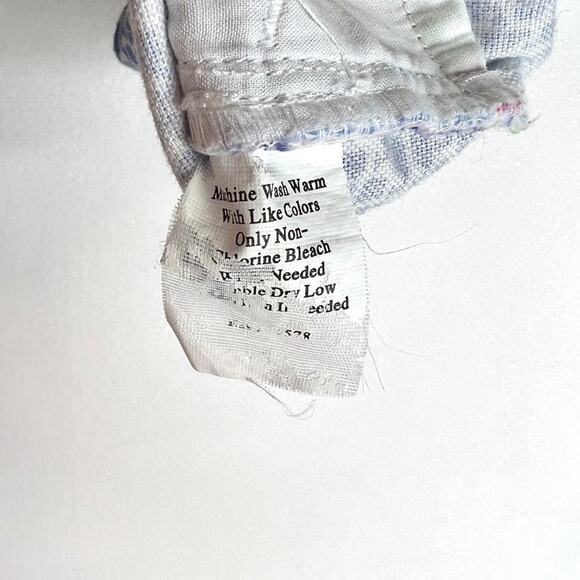 Machine Wash Warm
With Like Colors
Only Non-
Chlorine Bleach
Needed
Dry Low
578